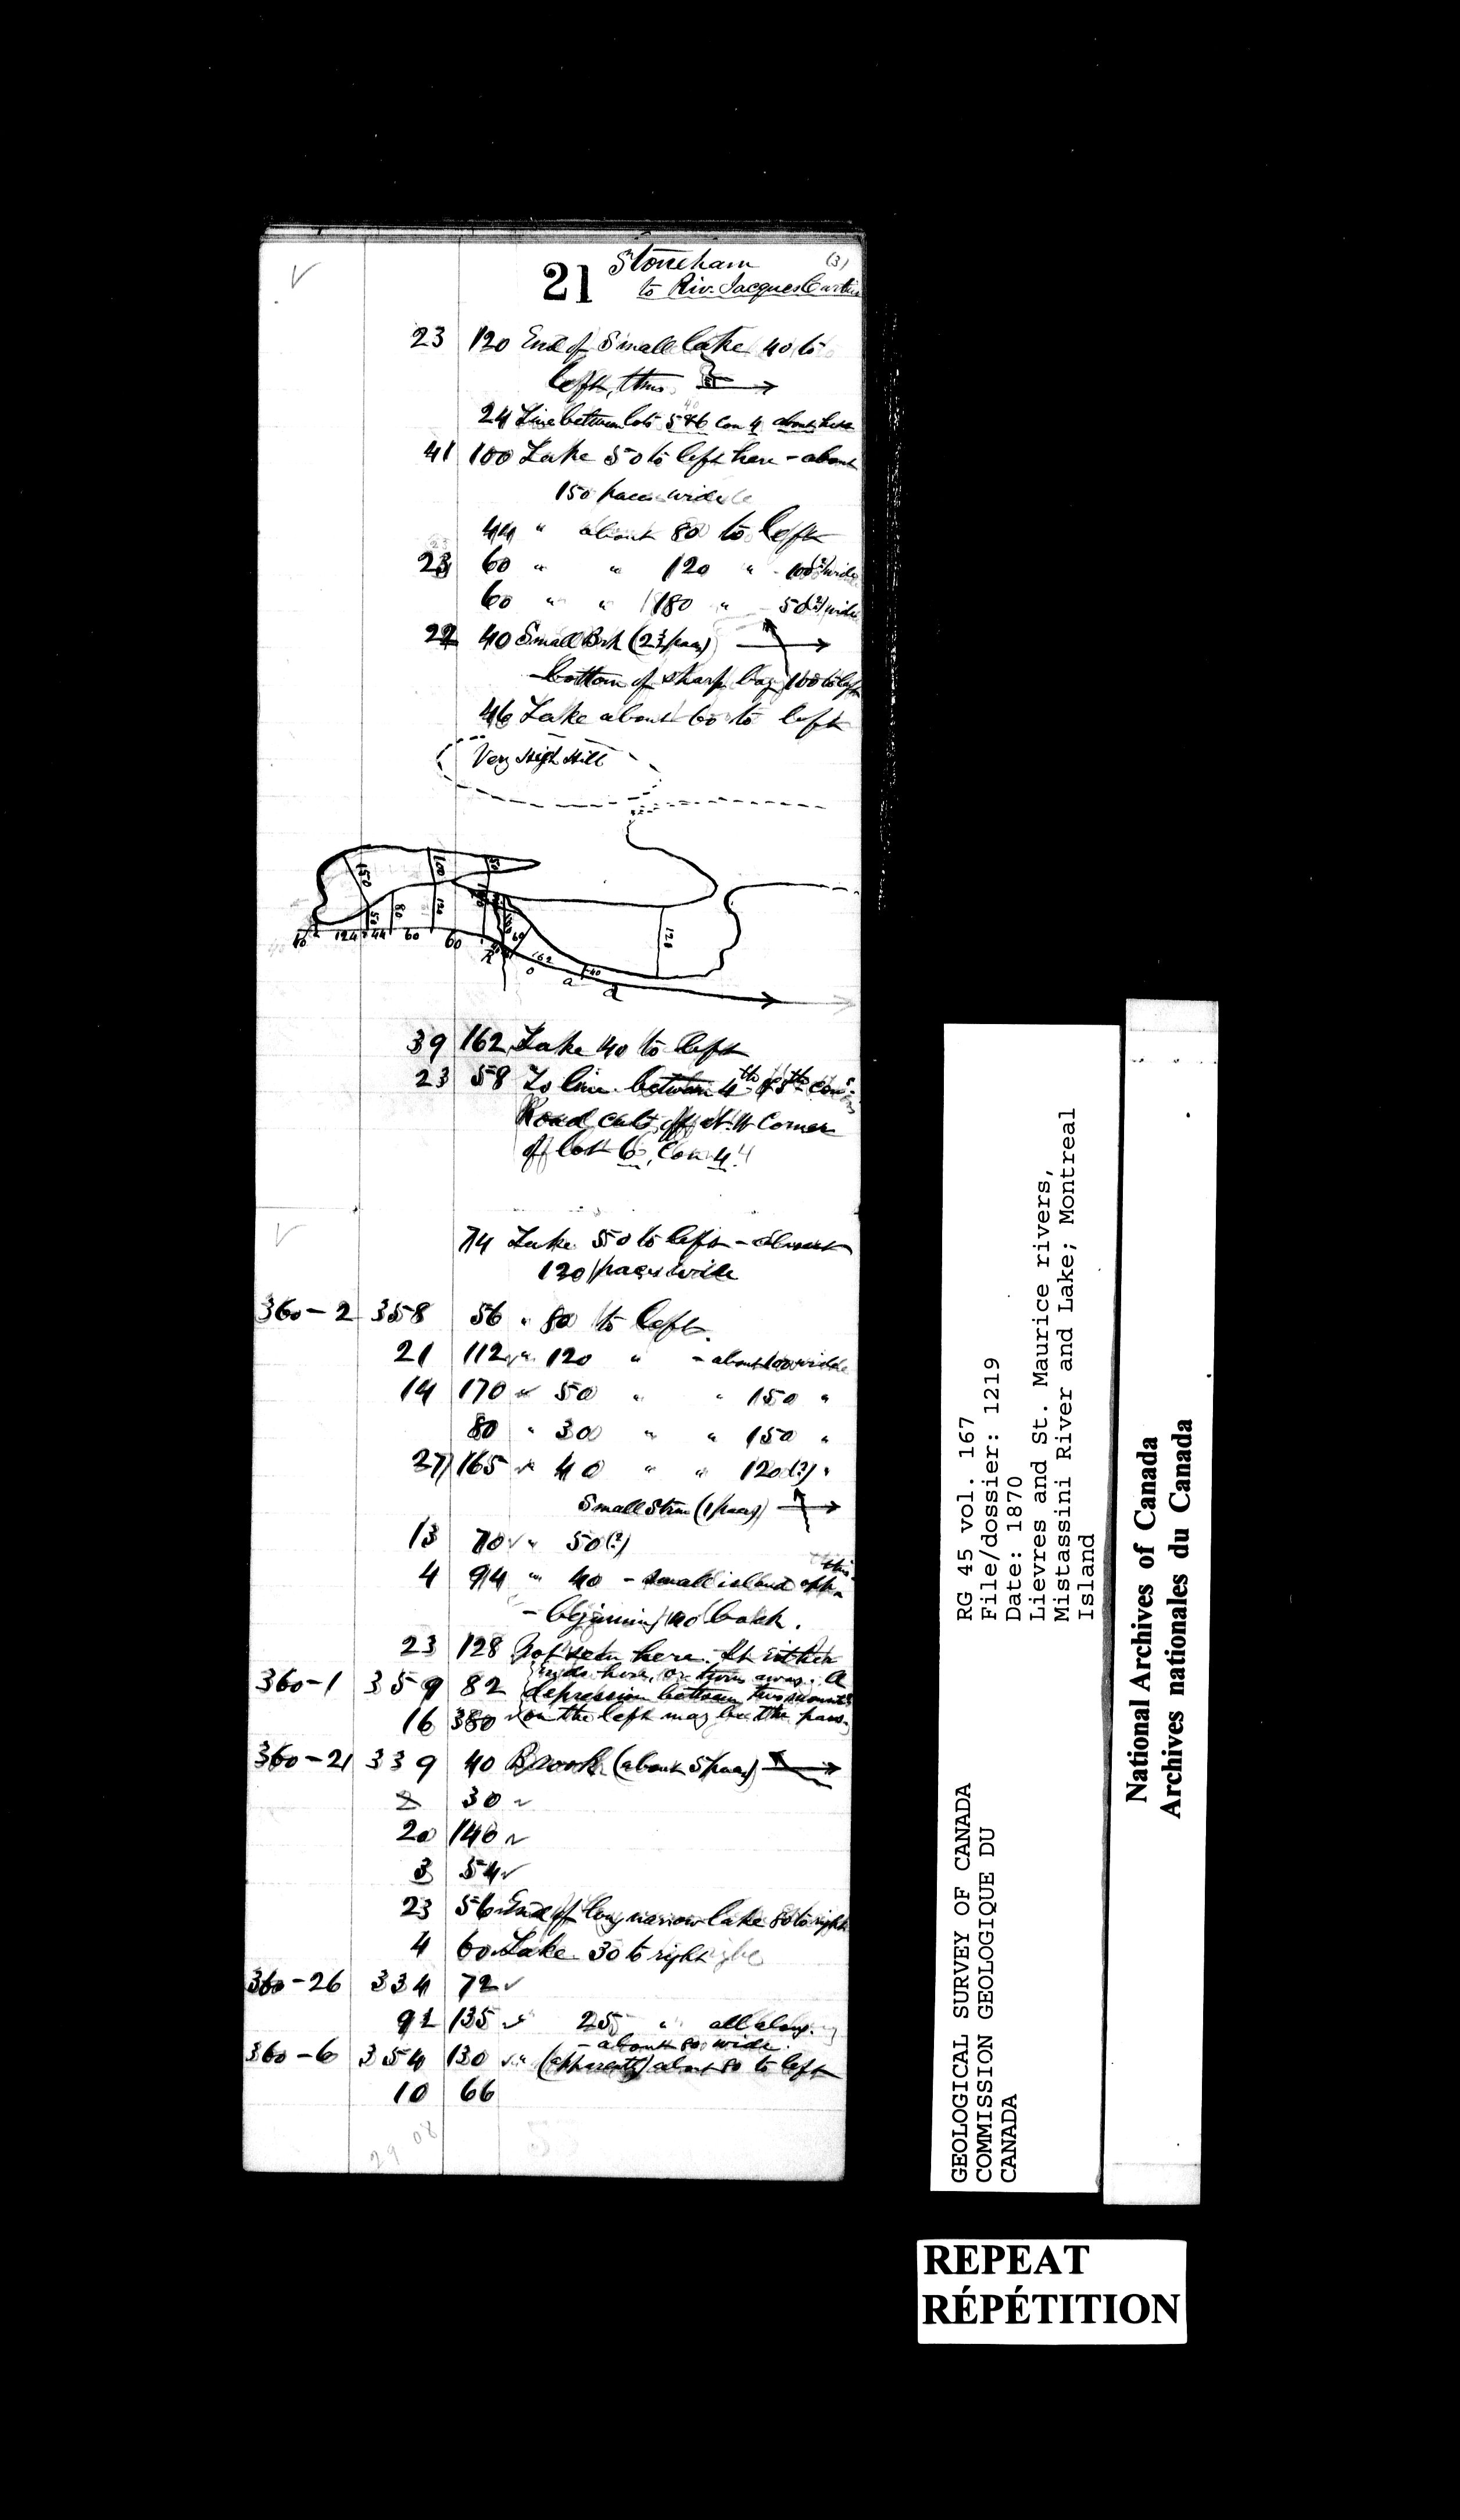 21 Stoneham (3)
to Riv. Jacques Cartier
23 120 End of Small lake 40 to
left, thus
24 Line between lots 5 & 6 Con 4 about here
41 100 Lake 50 to left here - about
150 paces wide
44 " about 80 to left
23 60 " " 120 " - 100(?) wide
60 " " 180 " - 50(?) wide
22 40 Small Brk (23 paces)
- bottom of sharp bay 100 to left
46 Lake about 60 to left
Very High Hill
150 100 50
50 80 120 120
40 124 44 60 60 162 40
R o a d
39 162 Lake 40 to left
23 58 To line between 4th & 5th Cons.
Road cuts off N.W Corner
of lot 6, Con 4
74 Lake 50 to left - about
120 paces wide
360-2 358 56 " 80 to left.
21 112 " 120 " - about 100 wide
14 170 " 50 " " 150 "
80 " 300 " " 150 "
27 165 " 40 " " 120(?) "
Small Strm (1 pace)
13 70 " 50(?)
4 94 " 40 - small island opp. this
- beginning 40 back.
23 128 Not seen here. It either
ends here, or turns away. A
360-1 359 82 depression between two mounts
16 380 on the left may be the pass.
360-21 339 40 Brook (about 5 paces)
2 30
20 146
3 54
23 56 End of long narrow lake 80 to right
4 60 Lake 30 to right
360-26 334 72
92 135 " 25 " all along.
- about 80 wide.
360-6 354 130 " (apparently) about 80 to left
10 66
29 08
RG 45 vol. 167
File/dossier: 1219
Date: 1870
Lievres and St. Maurice rivers,
Mistassini River and Lake; Montreal
Island
GEOLOGICAL SURVEY OF CANADA
COMMISSION GEOLOGIQUE DU
CANADA
National Archives of Canada
Archives nationales du Canada
REPEAT
RÉPÉTITION